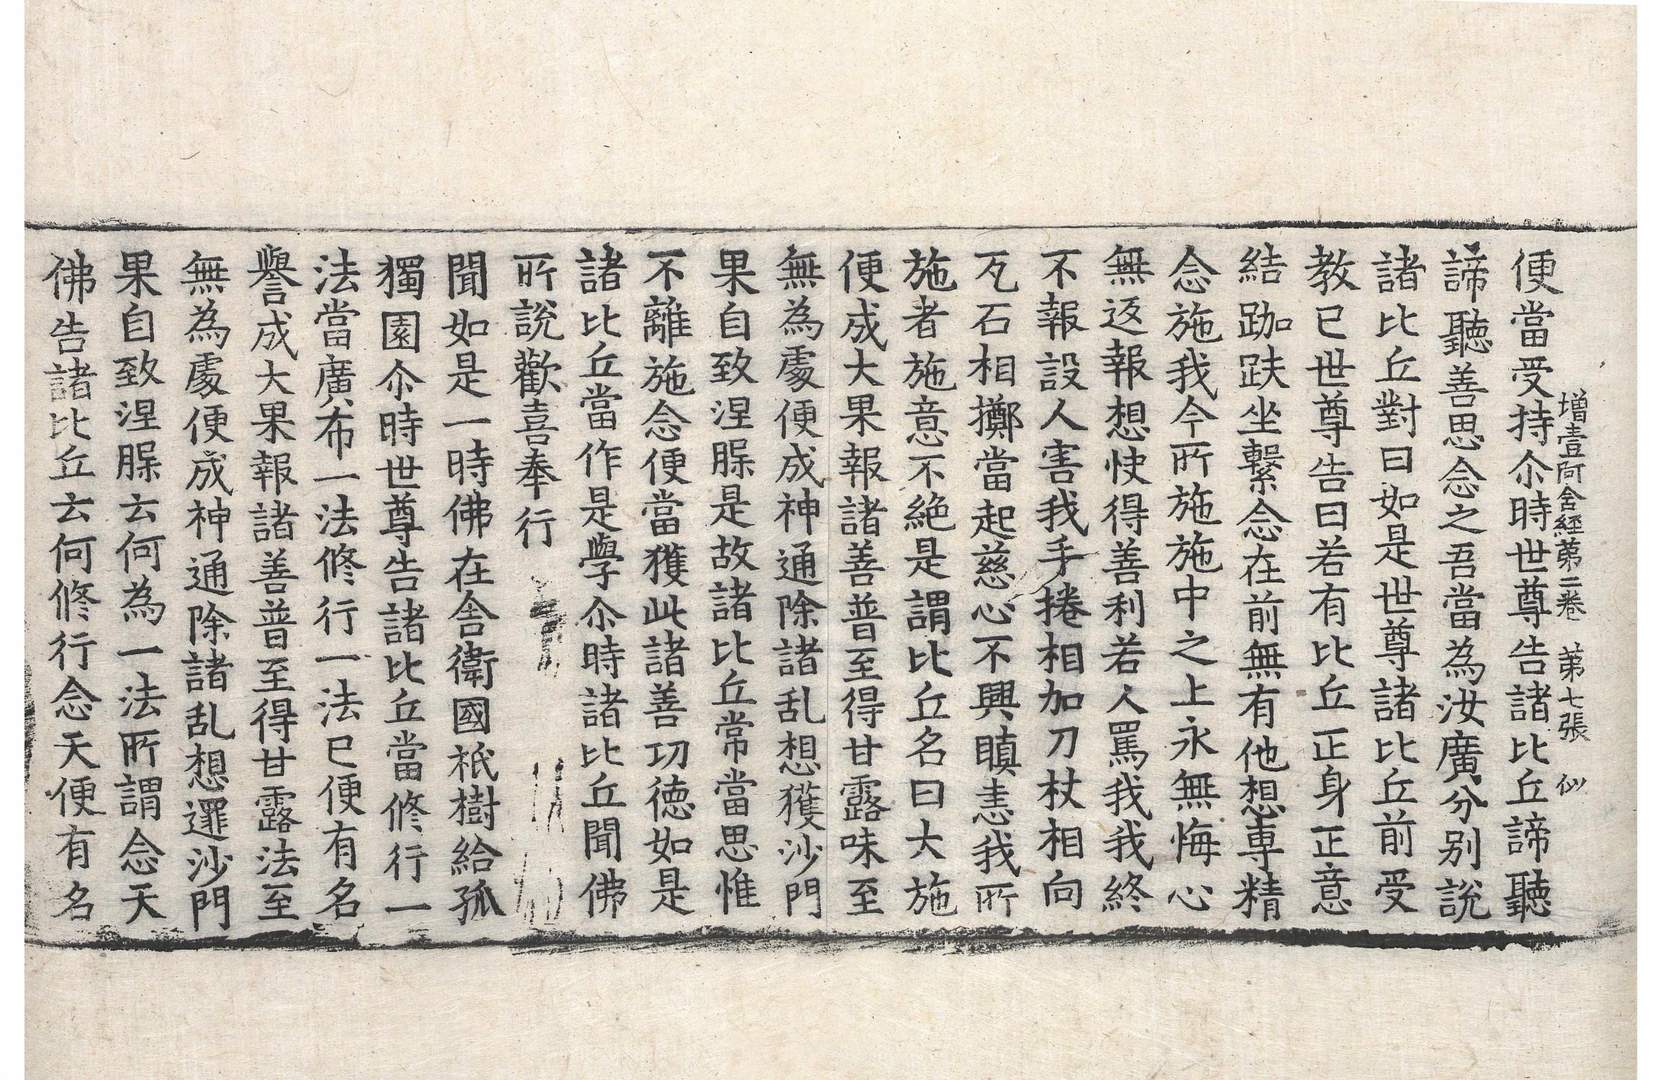 增壹阿含經第二卷 第七張 似
便當受持尒時世尊告諸比丘諦聽
諦聽善思念之吾當為汝廣分別說
諸比丘對曰如是世尊諸比丘前受
教已世尊告曰若有比丘正身正意
結跏趺坐繫念在前無有他想專精
念施我今所施施中之上永無悔心
無返報想快得善利若人罵我我終
不報設人害我手捲相加刀杖相向
瓦石相擲當起慈心不興瞋恚我所
施者施意不絕是謂比丘名曰大施
便成大果報諸善普至得甘露味至
無為處便成神通除諸乱想獲沙門
果自致涅槃是故諸比丘常當思惟
不離施念便當獲此諸善功德如是
諸比丘當作是學尒時諸比丘聞佛
所說歡喜奉行
聞如是一時佛在舍衛國祇樹給孤
獨園尒時世尊告諸比丘當修行一
法當廣布一法修行一法已便有名
譽成大果報諸善普至得甘露法至
無為處便成神通除諸乱想逮沙門
果自致涅槃云何為一法所謂念天
佛告諸比丘云何修行念天便有名